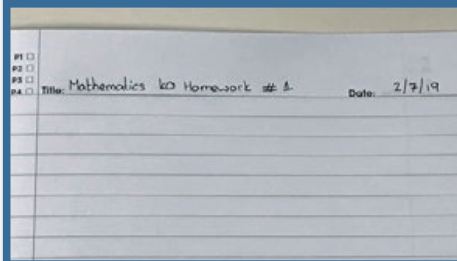 P1
P2
P3
P4 Title: Mathematics ko Homework # 1 Date: 2/7/19